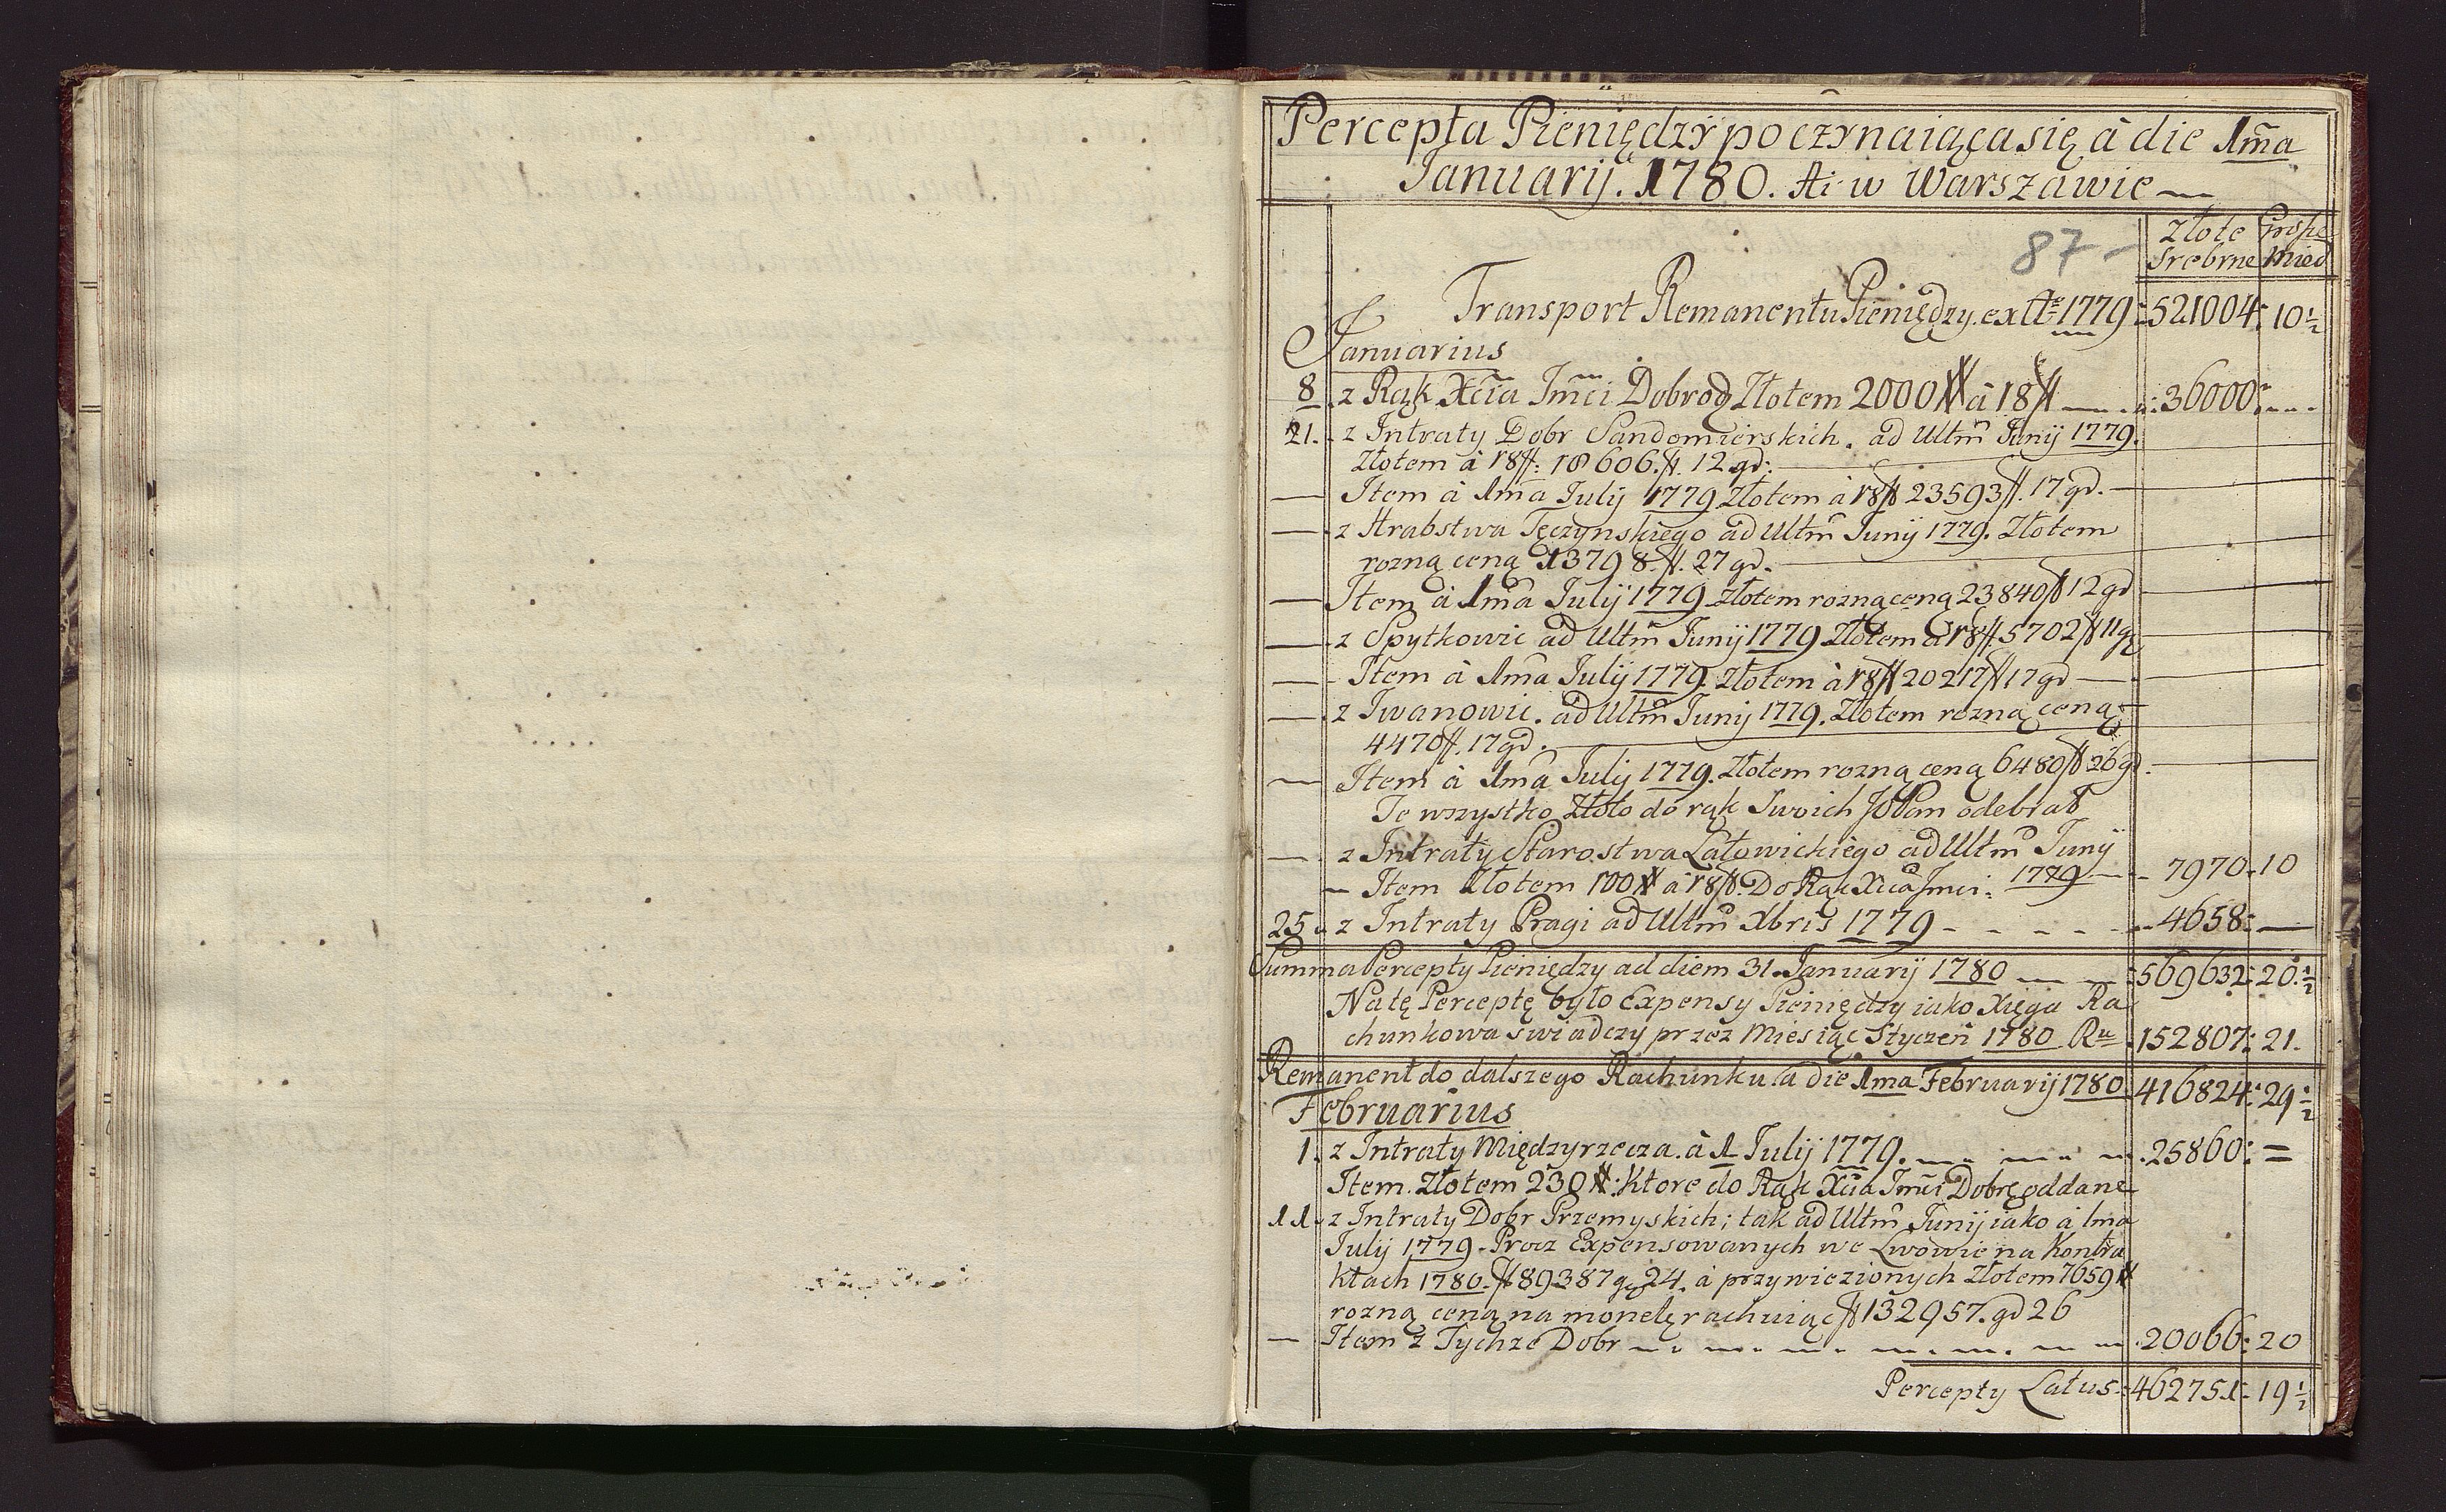 Percepta Pieniędzy poczynaiąca się à die 1m̃a
Januarij. 1780. Ai w Warszawie
87
Złote Grosze
Srebrne Mied
Transport Remanentu Pieniędzy ex Ae 1779 : 521004 : 10 1/2
Januarius
8 . z Rąk Xcia Jmci Dobrod Złotem 2000 # à 18 ff : 36000 :
21 . z Intraty Dobr Sandomierskich . ad Ultm̃ Junij 1779.
Złotem à 18 ff : 18606 . ff . 12 gd :
— Item à 1m̃a Julij 1779 Złotem à 18 ff 23593 ff . 17 gd .
— z Hrabstwa Tęczynskiego ad Ultm̃ Junij 1779 . Złotem
rozną ceną 13798 . ff . 27 gd .
— Item à 1m̃a Julij 1779 Złotem rozną ceną 23840 ff 12 gd
— z Spytkowic ad Ultm̃ Junij 1779 Złotem à 18 ff 5702 ff 11 g
— Item à 1m̃a Julij 1779 . Złotem à 18 ff 20217 ff 17 gd —
— z Iwanowic . ad Ultm̃ Junij 1779 . Złotem rozną ceną
4470 ff . 17 gd .
— Item à 1m̃a Julij 1779 . Złotem rozną ceną 6480 ff 26 gd .
Te wszystko Złoto do rąk Swoich JO Pan odebrał
— z Intraty Starostwa Latowickiego ad Ultm̃ Junij
1779 — 7970 . 10
— Item Złotem 100 # à 18 ff . Do Rąk Xcia Jmci .
25 . z Intraty Pragi ad Ultm̃ Xbris 1779 - - - - - 4658 : —
Summa Percepty Pieniędzy ad diem 31 . Januarij 1780 — : 569632 : 20 . 1/2
Na tę Perceptę było Expensy Pieniędzy iako Xięga Ra
chunkowa swiadczy przez Miesiąc Styczeń 1780 Ru . 152807 : 21 .
Remanent do dalszego Rachunku à die 1ma Februarij 1780 . 416824 : 29 1/2
Februarius
1 . z Intraty Międzyrzecza . à 1 Julij 1779 . — . 25860 : =
Item . Złotem 230 # : Ktore do Rąk Xcia Jmci Dobr oddane
11 . z Intraty Dobr Przemyskich ; tak ad Ultm̃ Junij iako à 1ma
Julij 1779 . Procz Expensowanych we Lwowie na Kontra
ktach 1780 . ff 89387 g 24 . à przywiezionych Złotem 7659 #
rozną ceną na monetę rachuiąc ff 132957 . gd 26
— Item z Tychze Dobr — . 20066 : 20
Percepty Latus : 462751 : 19 1/2